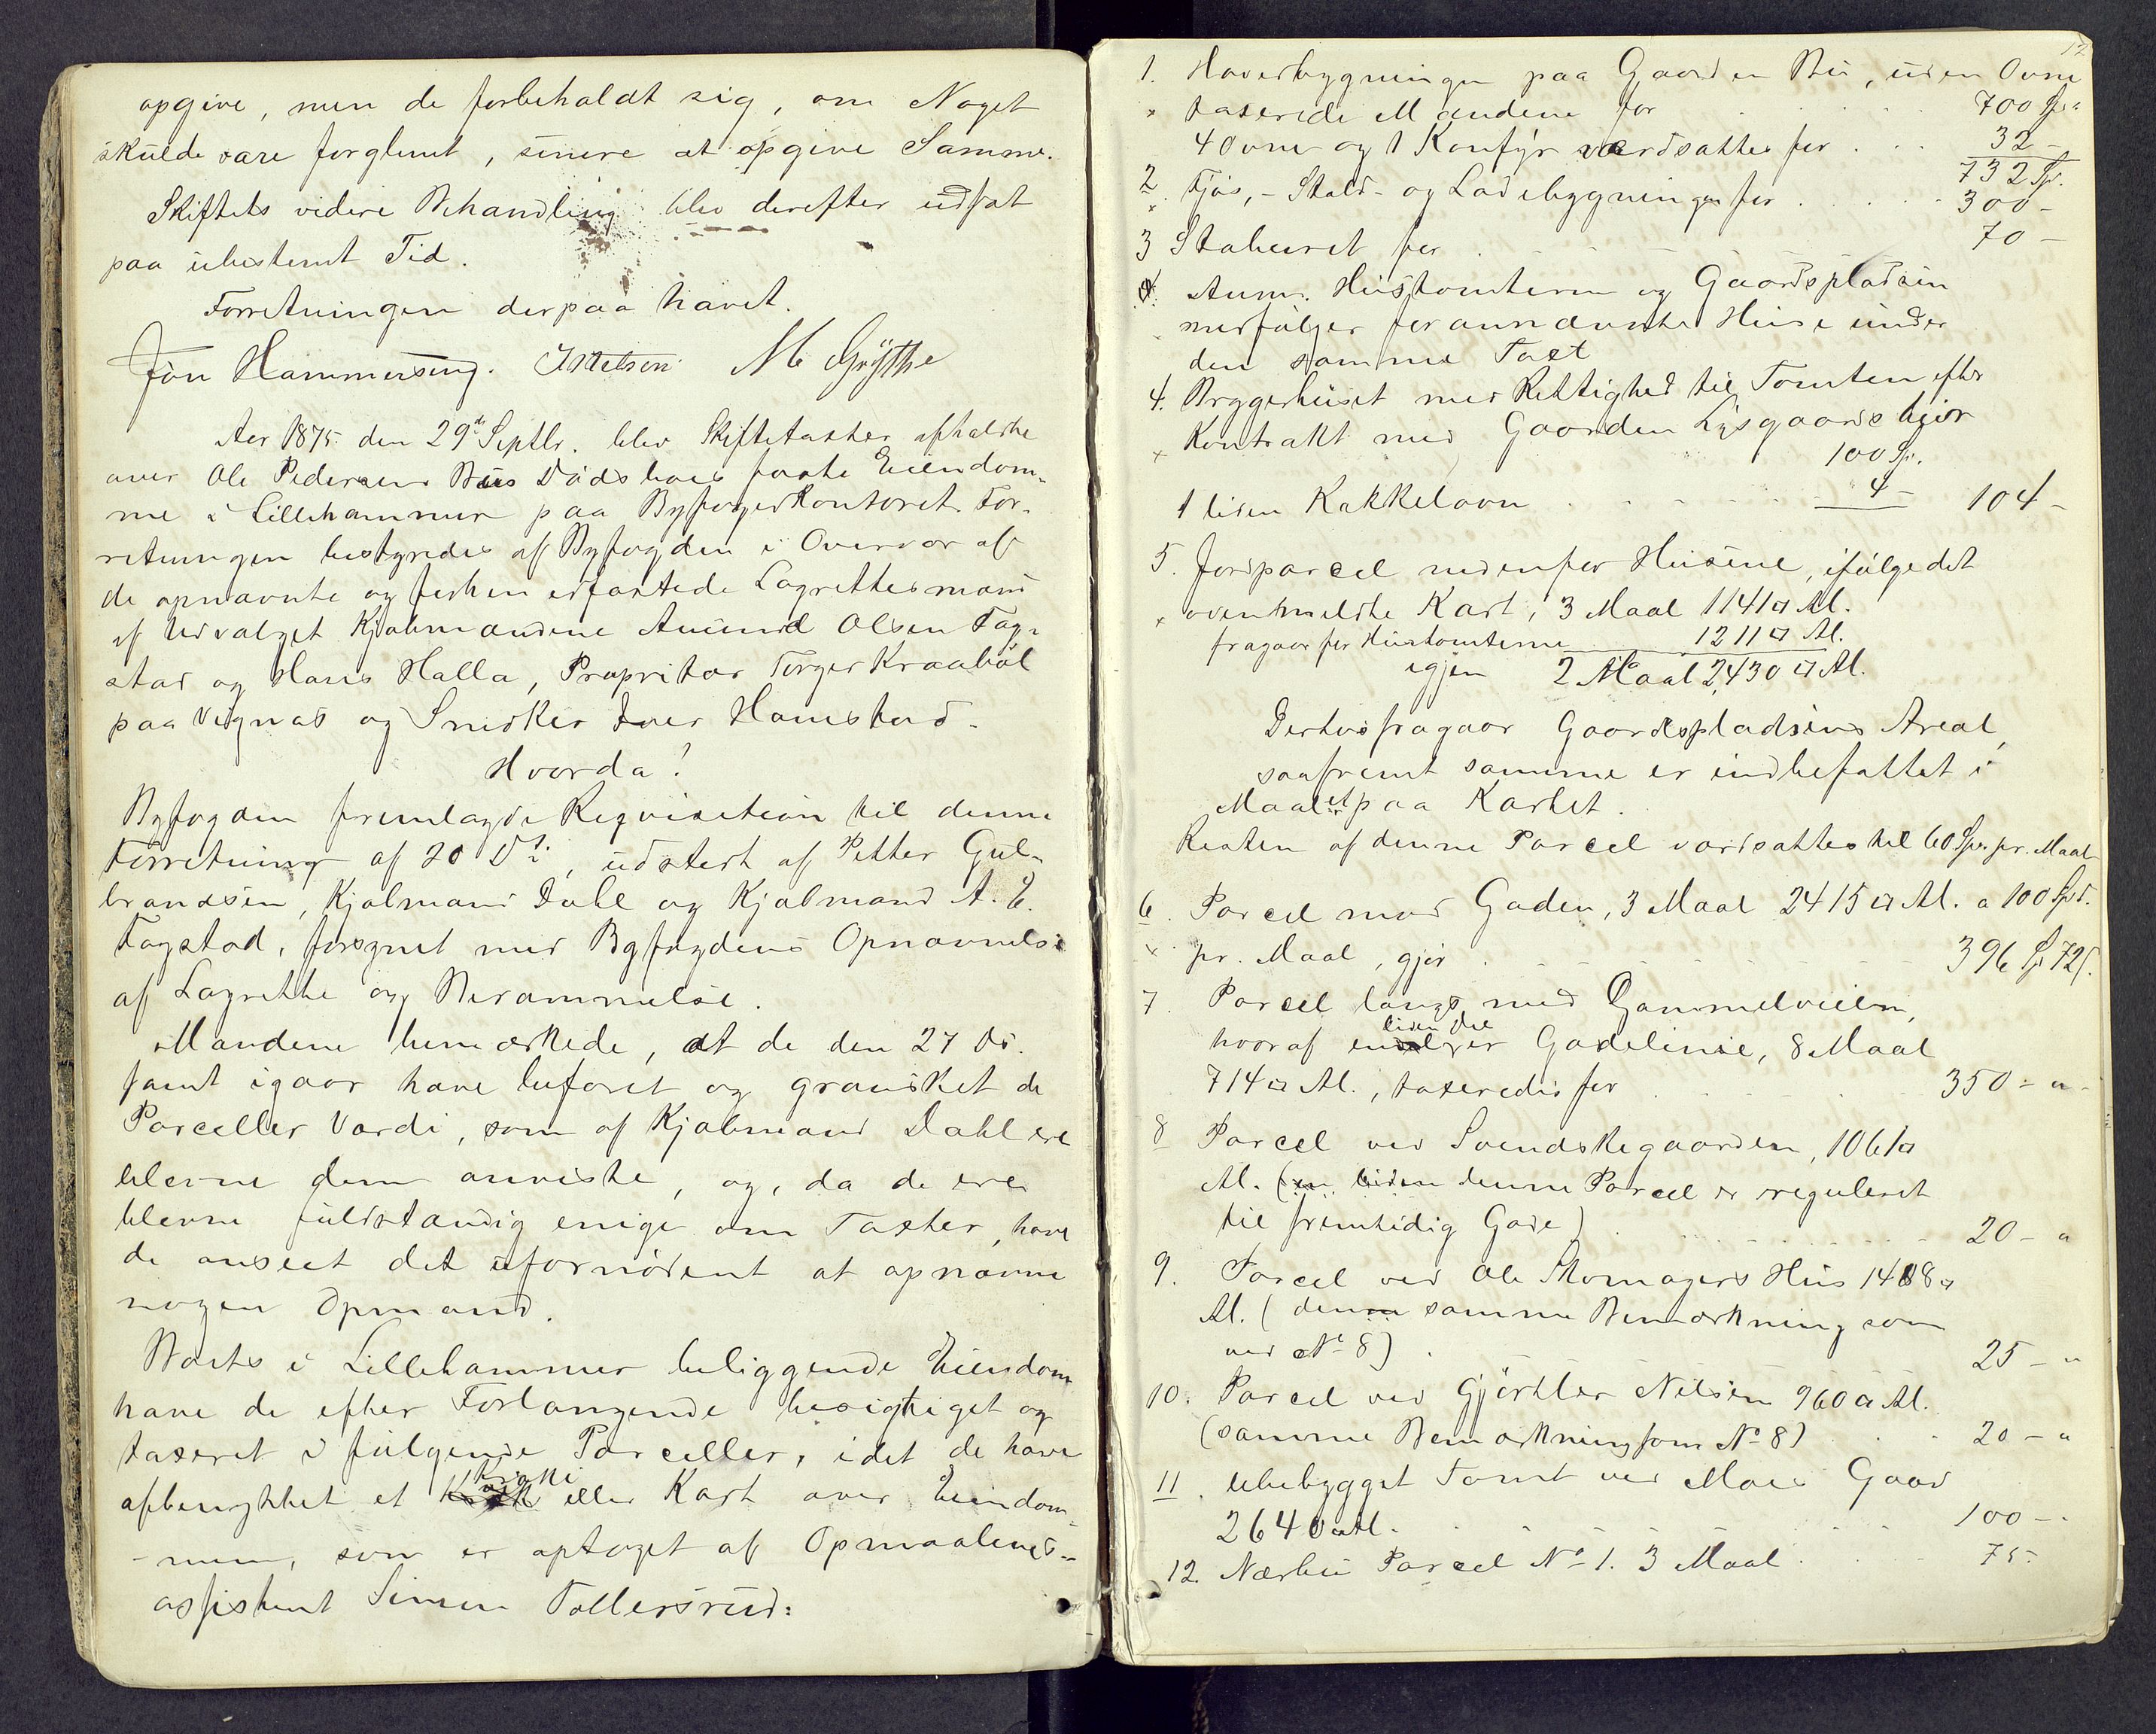 opgive, men de forbeholdt sig, om Noget
skulde være forglemt, senere at opgive Samme.
Skiftets videre Behandling blev derefter udsat
paa ubestemt Tid.
Forretningen derpaa hævet.
Jon Hammerseng. I Nielsen M Grÿtthe
Aar 1875 den 29de Septbr. blev Skiftetaxter afholdte
over Ole Pedersen Bues Dödsboes faste Eiendom-
me i Lillehammer paa Byfogedkontoret. For-
retningen bestyredes af Byfogden i Overvær af
de opnævnte og forhen edfæstede Lagrettesmænd
af Udvalget Kjøbmændene Amund Olsen Fag-
stad og Hans Halla, Proprietær Torger Kraaböl
paa Vignæs og Snedker Iver Hamestad.
Hvorda!
Byfogden fremlagde Reqvisition til denne
Forretning af 20 Ds, udstedt af Petter Gul-
brandsen, Kjøbmand Dahl og Kjøbmand A. O.
Fagstad, forsynet med Byfogdens Opnævnelse
af Lagrette og Berammelse.
Mændene bemærkede, at de den 27 ds.
samt igaar have befaret og gransket de
Parceller Værdi, som af Kjøbmand Dahl ere
blevne dem anviste, og, da de ere
blevne fuldstændig enige om Taxter, have
de anseet det ufornödent at opnævne
nogen Opmand.
Boets i Lillehammer beliggende Eiendom
have de efter Forlangende besigtiget og
taxeret i fölgende Parceller, idet de have
afbenyttet et Kroki eller Kart over Eiendom-
-men, som er optaget af Opmaalings-
assistent Simen Tollersrud:
12
1. Hovedbygningen paa Gaarden Bu, uden Ovne
x taxerede Mændene for . . . 700 Spd
4 Ovne og 1 Komfyr værdsattes for . . . 32 -
732 Sp.
2. Fjös,- Stald- og Ladebygningen for . . . 300 -
3 Staburet for . . . 70 -
Anm. Hustomterne og Gaardspladsen
medfölger forannævnte Huse under
den samme Taxt
4. Bryggerhuset med Rettighed til Tomten efter
x Kontrakt med Gaarden Lysgaards Eier
100 Sp.
1 liden Kakkelovn . . . 4 - 104 -
5. Jordparcel nedenfor Husene, ifölge det
x ovenmeldte Kart, 3 Maal 1141 □ Al.
fragaar for Hustomterne 1211 □ Al.
igjen 2 Maal 2,430 □ Al.
Dertos fragaar Gaardspladsens Areal,
saafremt samme er indbefattet i
Maalet paa Kartet.
Resten af denne Parcel værdsattes til 60 Spd. pr. Maal
6. Parcel mod Gaden, 3 Maal 2415 □ Al. a 100 Spd.
x pr. Maal, gjør . . . 396 Sp 72 s.
7. Parcel langs med Gammelveien,
hvoraf en liden Del er Gadelinie, 8 Maal
714 □ Al., taxeredes for . . . 350 - "-
8 Parcel ved Svendskegaarden, 1061 □
Al. (en liden denne Parcel er reguleret
til fremtidig Gade) . . . 20 - "
9. Parcel ved Ole Skomagers Hus 1488 □
Al. (denne samme Bemærkning som
ved No 8) . . . 25 - "
10. Parcel ved Gjørtler Nielsen 960 □ Al.
(samme Bemærkning som No 8) . . . 20 - "
11 Ubebygget Tomt ved Moes Gaard
2640 □ Al. . . . 100 - .
12. Nærbu Parcel No 1. 3 Maal . . . 75 -